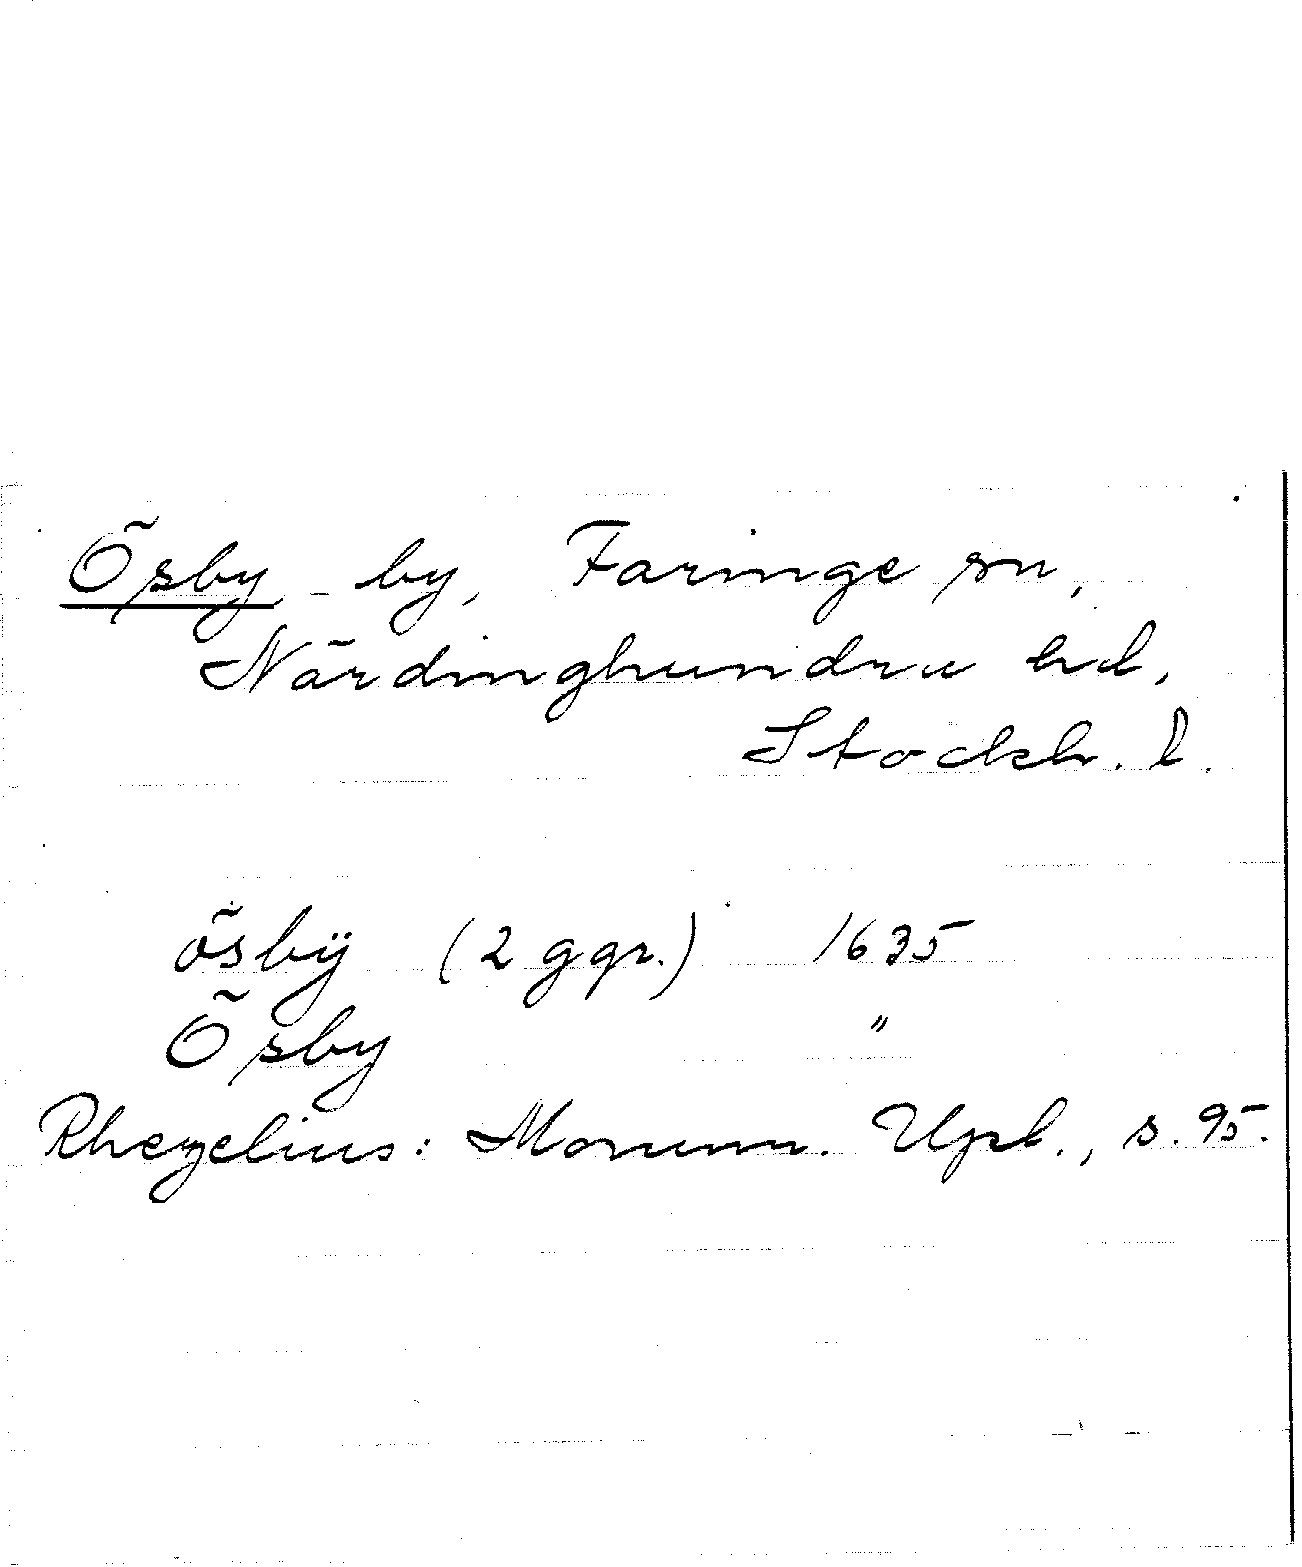 Ösby by, Faringe sn,
Närdinghundra hd,
Stockh. l.
ösbÿ (2 ggr.) 1635
Ösby "
Rhezelius: Monum. Upl., s. 95.